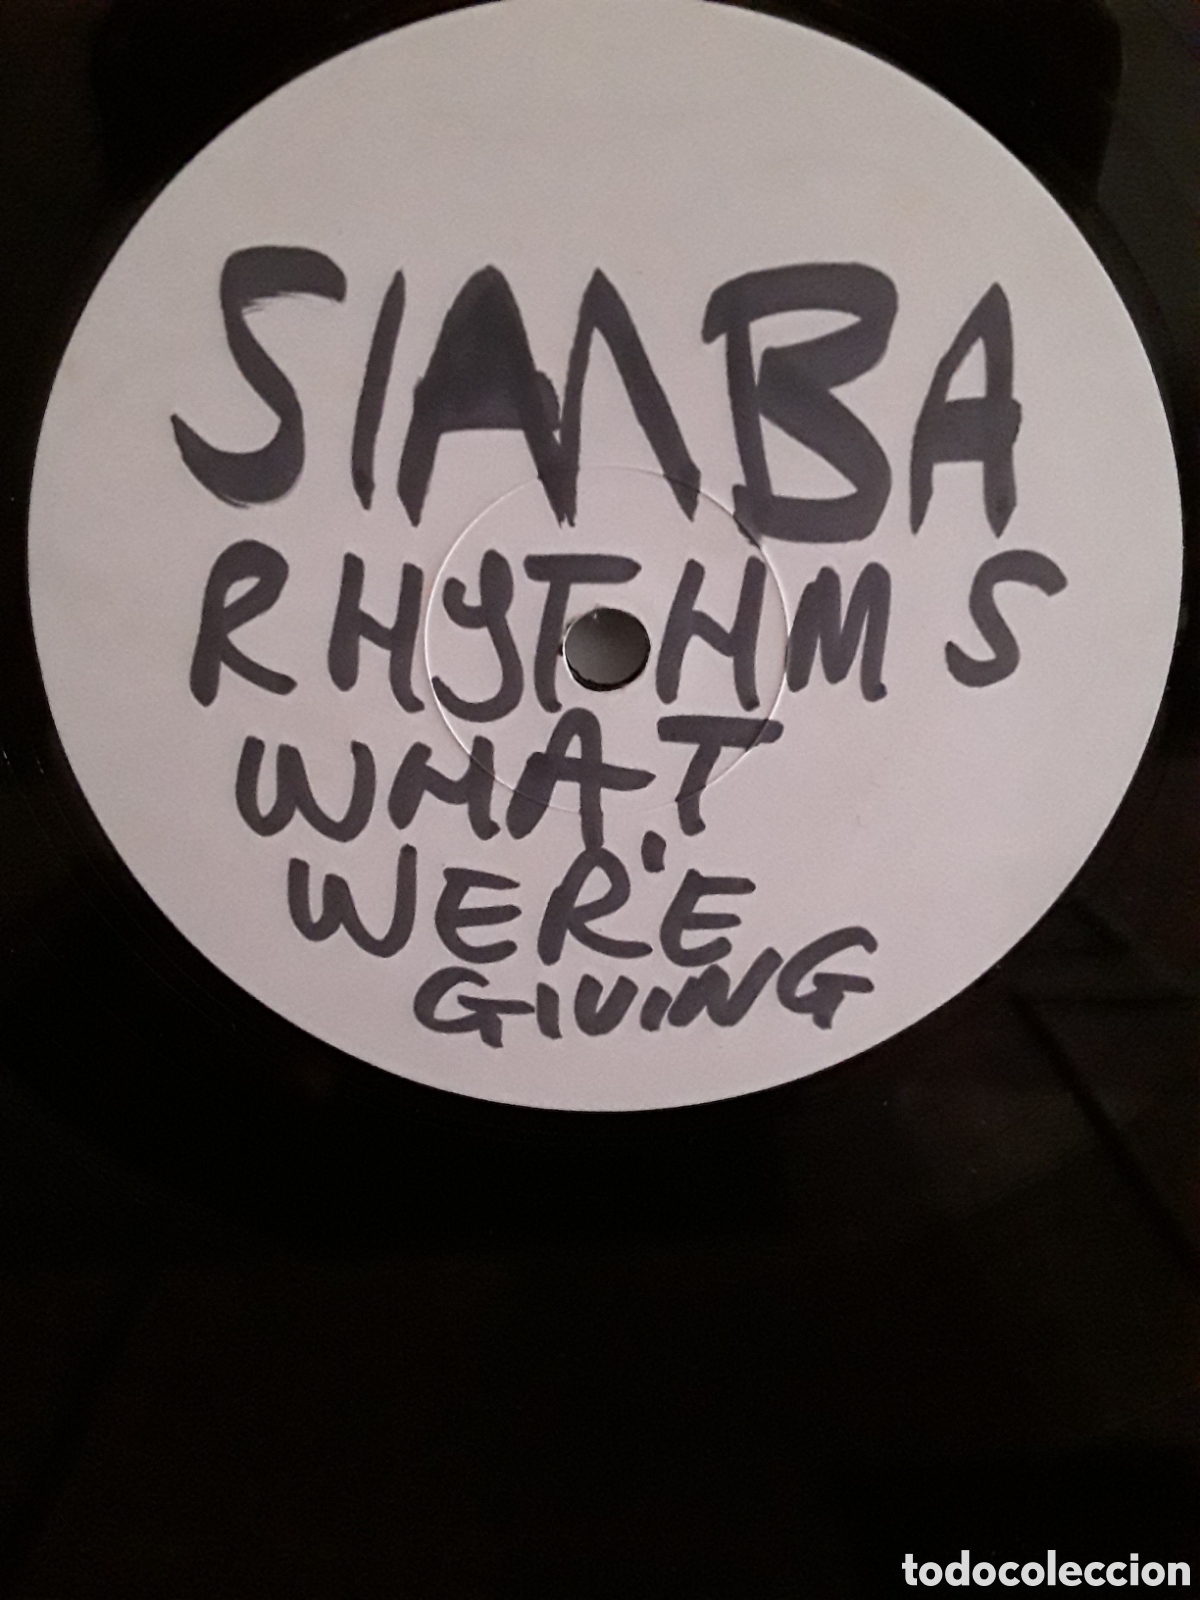 SIMBA
RHYTHMS
WHAT
WER'E
GIVING
todocoleccion